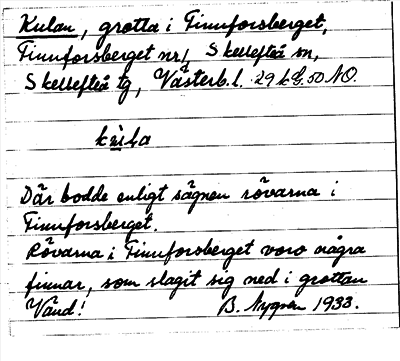 Kulan, grotta i Finnforsberget,
Finnforsberget nr 1, Skellefteå sn,
Skellefteå tg, Västerb. l. 29 k G. 50 NO.
Där bodde enligt sägnen rövarna i
Finnforsberget.
Rövarna i Finnforsberget voro några
finnar, som slagit sig ned i grottan
Vänd! B. Nygren 1933.